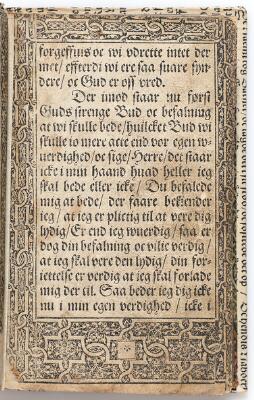 forgeffuis oc wi vdrette intet der
met / effterdi wi ere saa suare syn
dere / oc Gud er oss vred.
Der imod staar nu først
Guds strenge Bud oc befalning
at wi skulle bede / huilcket Bud wi
skulle io mere acte end vor egen w-
uerdighed / oc sige / Herre / det staar
icke i min haand huad heller ieg
skal bede eller icke / Du befalede
mig at bede / der faare bekiender
ieg / at ieg er plictig til at vere dig
lydig / Er end ieg wuerdig / saa er
dog din befalning oc vilie verdig /
at ieg skal vere den lydig / din for-
iettelse er verdig at ieg skal forlade
mig der til. Saa beder ieg dig icke
nu i min egen verdighed / icke i